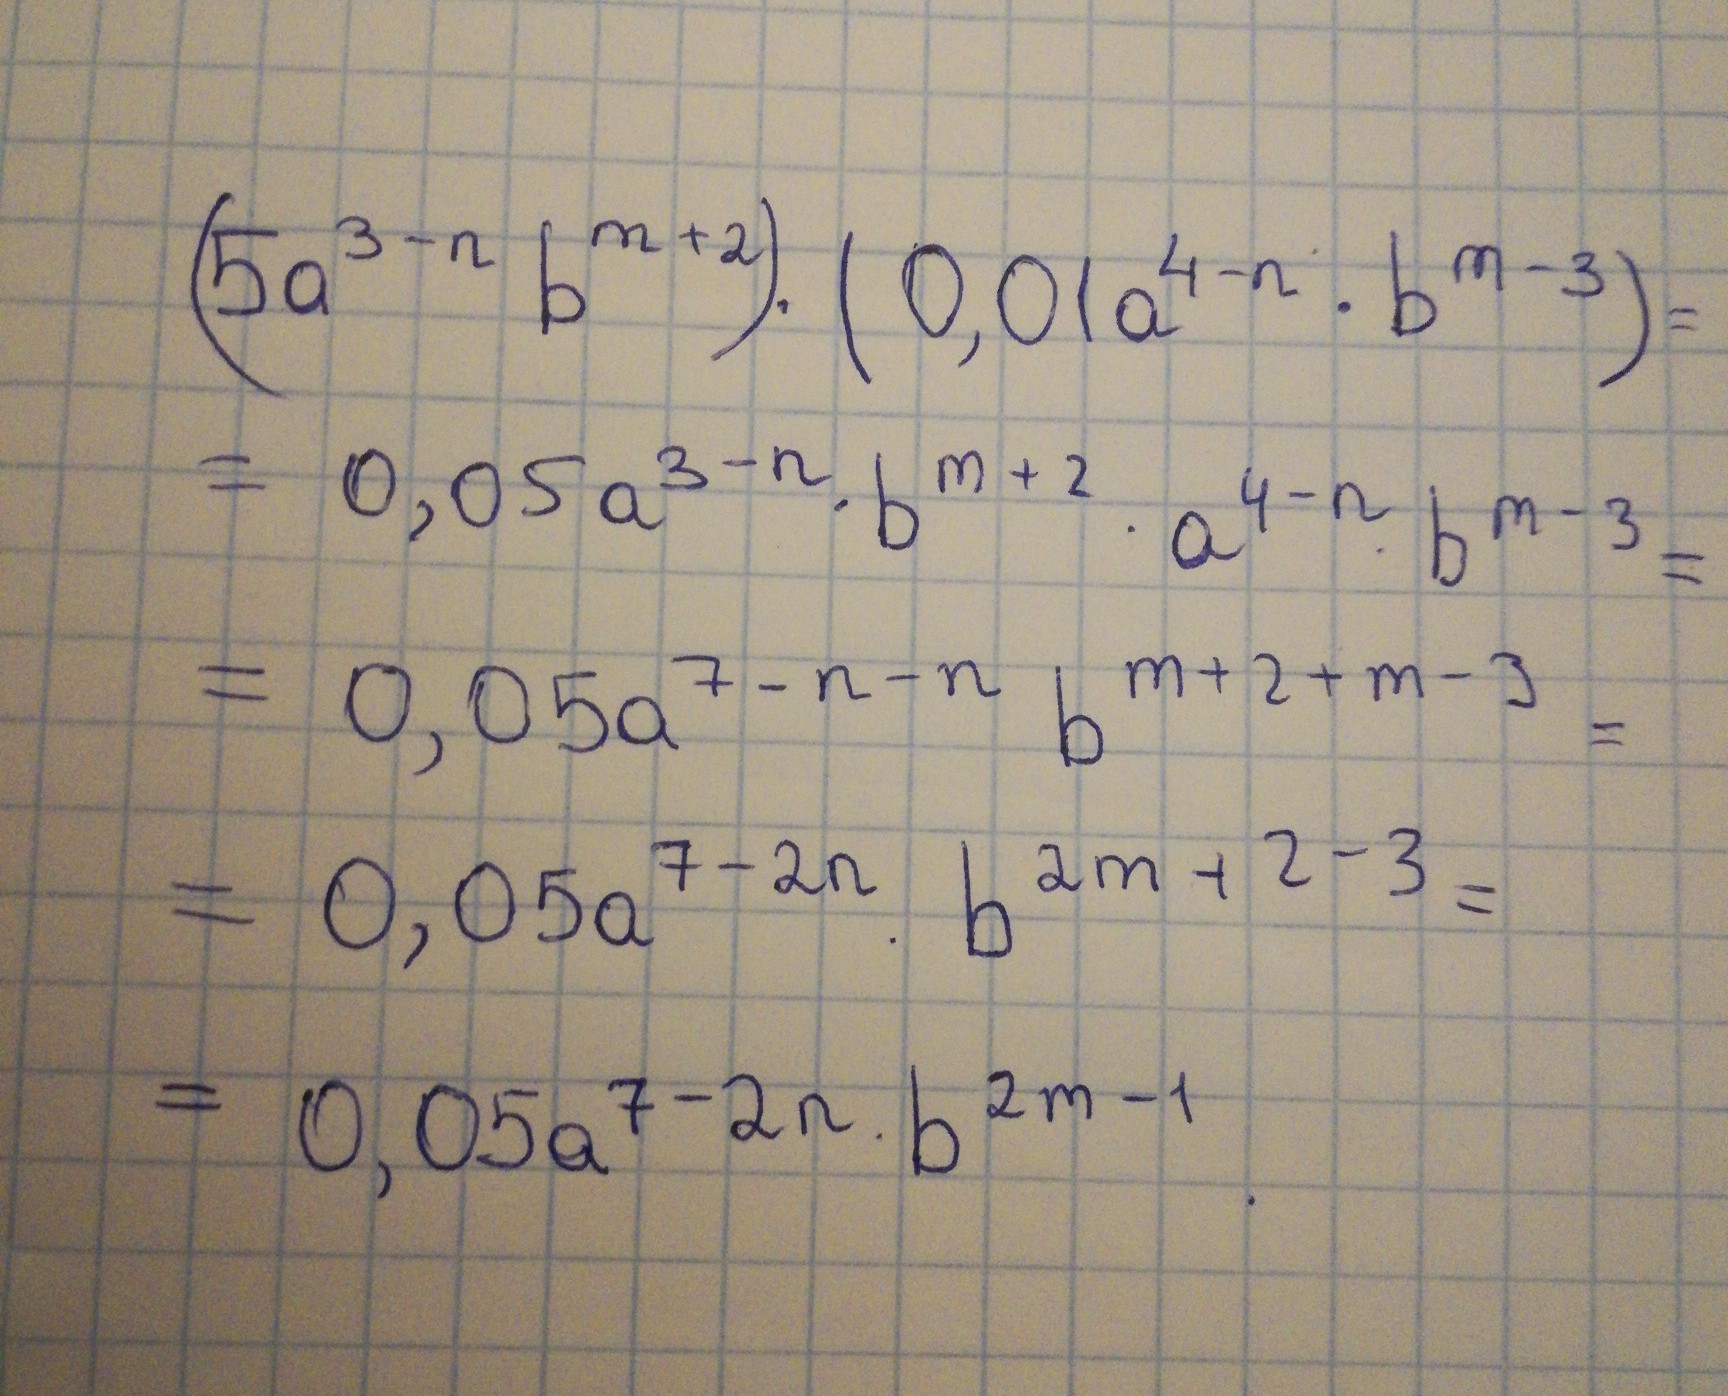 (5a^{3-n} b^{m+2}) · (0,01a^{4-n} · b^{m-3}) =
= 0,05a^{3-n} · b^{m+2} · a^{4-n} · b^{m-3} =
= 0,05a^{7-n-n} b^{m+2+m-3} =
= 0,05a^{7-2n} · b^{2m+2-3} =
= 0,05a^{7-2n} · b^{2m-1}.